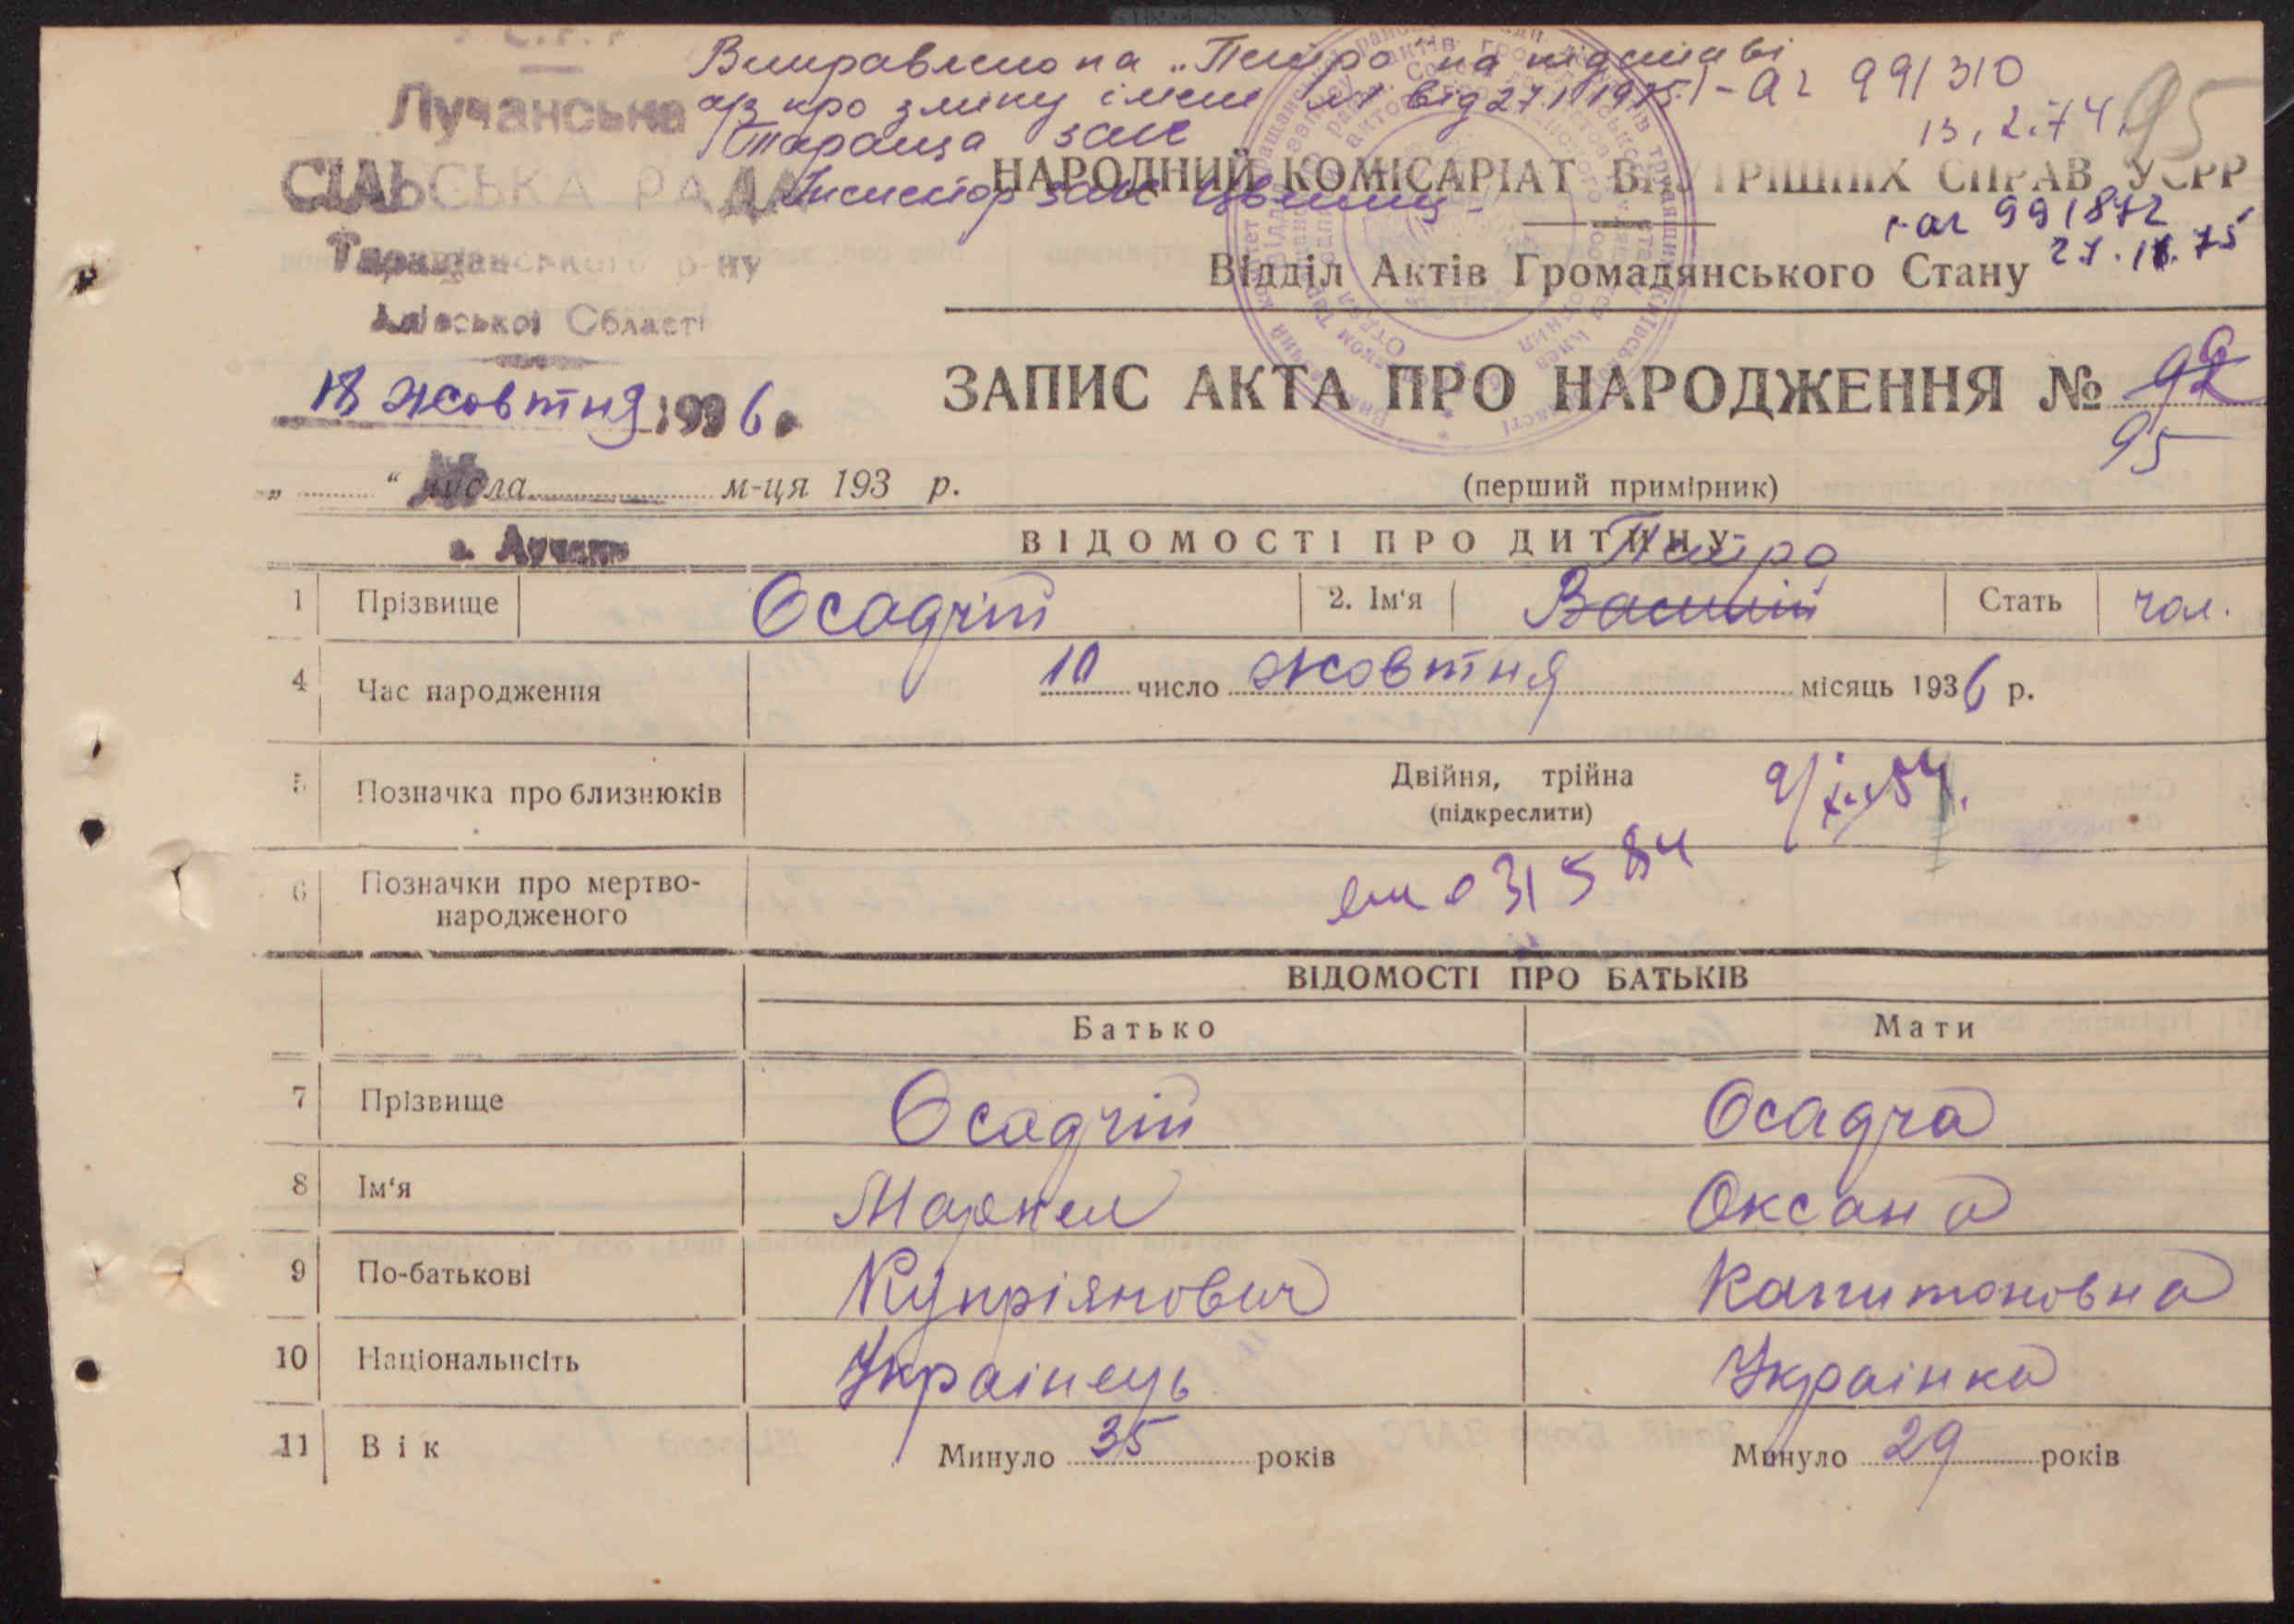 Виправлено на „Петро" на підставі
а/з про зміну імені №1 від 27 1 1975. І-аг 991310
13.2.74. 95
Тараща загс
Інспектор загс
Лучанська
СІЛЬСЬКА РАДА
Таращанського р-ну
Київської Області
НАРОДНИЙ КОМІСАРІАТ ВНУТРІШНІХ СПРАВ УСРР
І-аг 991872
Відділ Актів Громадянського Стану
18 жовтня 1936.
ЗАПИС АКТА ПРО НАРОДЖЕННЯ №
95
„ “ числа м-ця 193 р.
(перший примірник)
с. Лучань
ВІДОМОСТІ ПРО ДИТИНУ
Петро
1 Прізвище Осадчій 2. Ім‘я Василій Стать чол.
4 Час народження 10 число жовтня місяць 1936 р.
5 Позначка про близнюків Двійня, трійна
(підкреслити)
9/XII 54.
6 Позначки про мертво-
народженого
031584
ВІДОМОСТІ ПРО БАТЬКІВ
Батько Мати
7 Прізвище Осадчій Осадча
8 Ім‘я Маркел Оксана
9 По-батькові Купріянович Капитоновна
10 Національнсіть Украінець Украінка
11 Вік Минуло 35 років Минуло 29 років